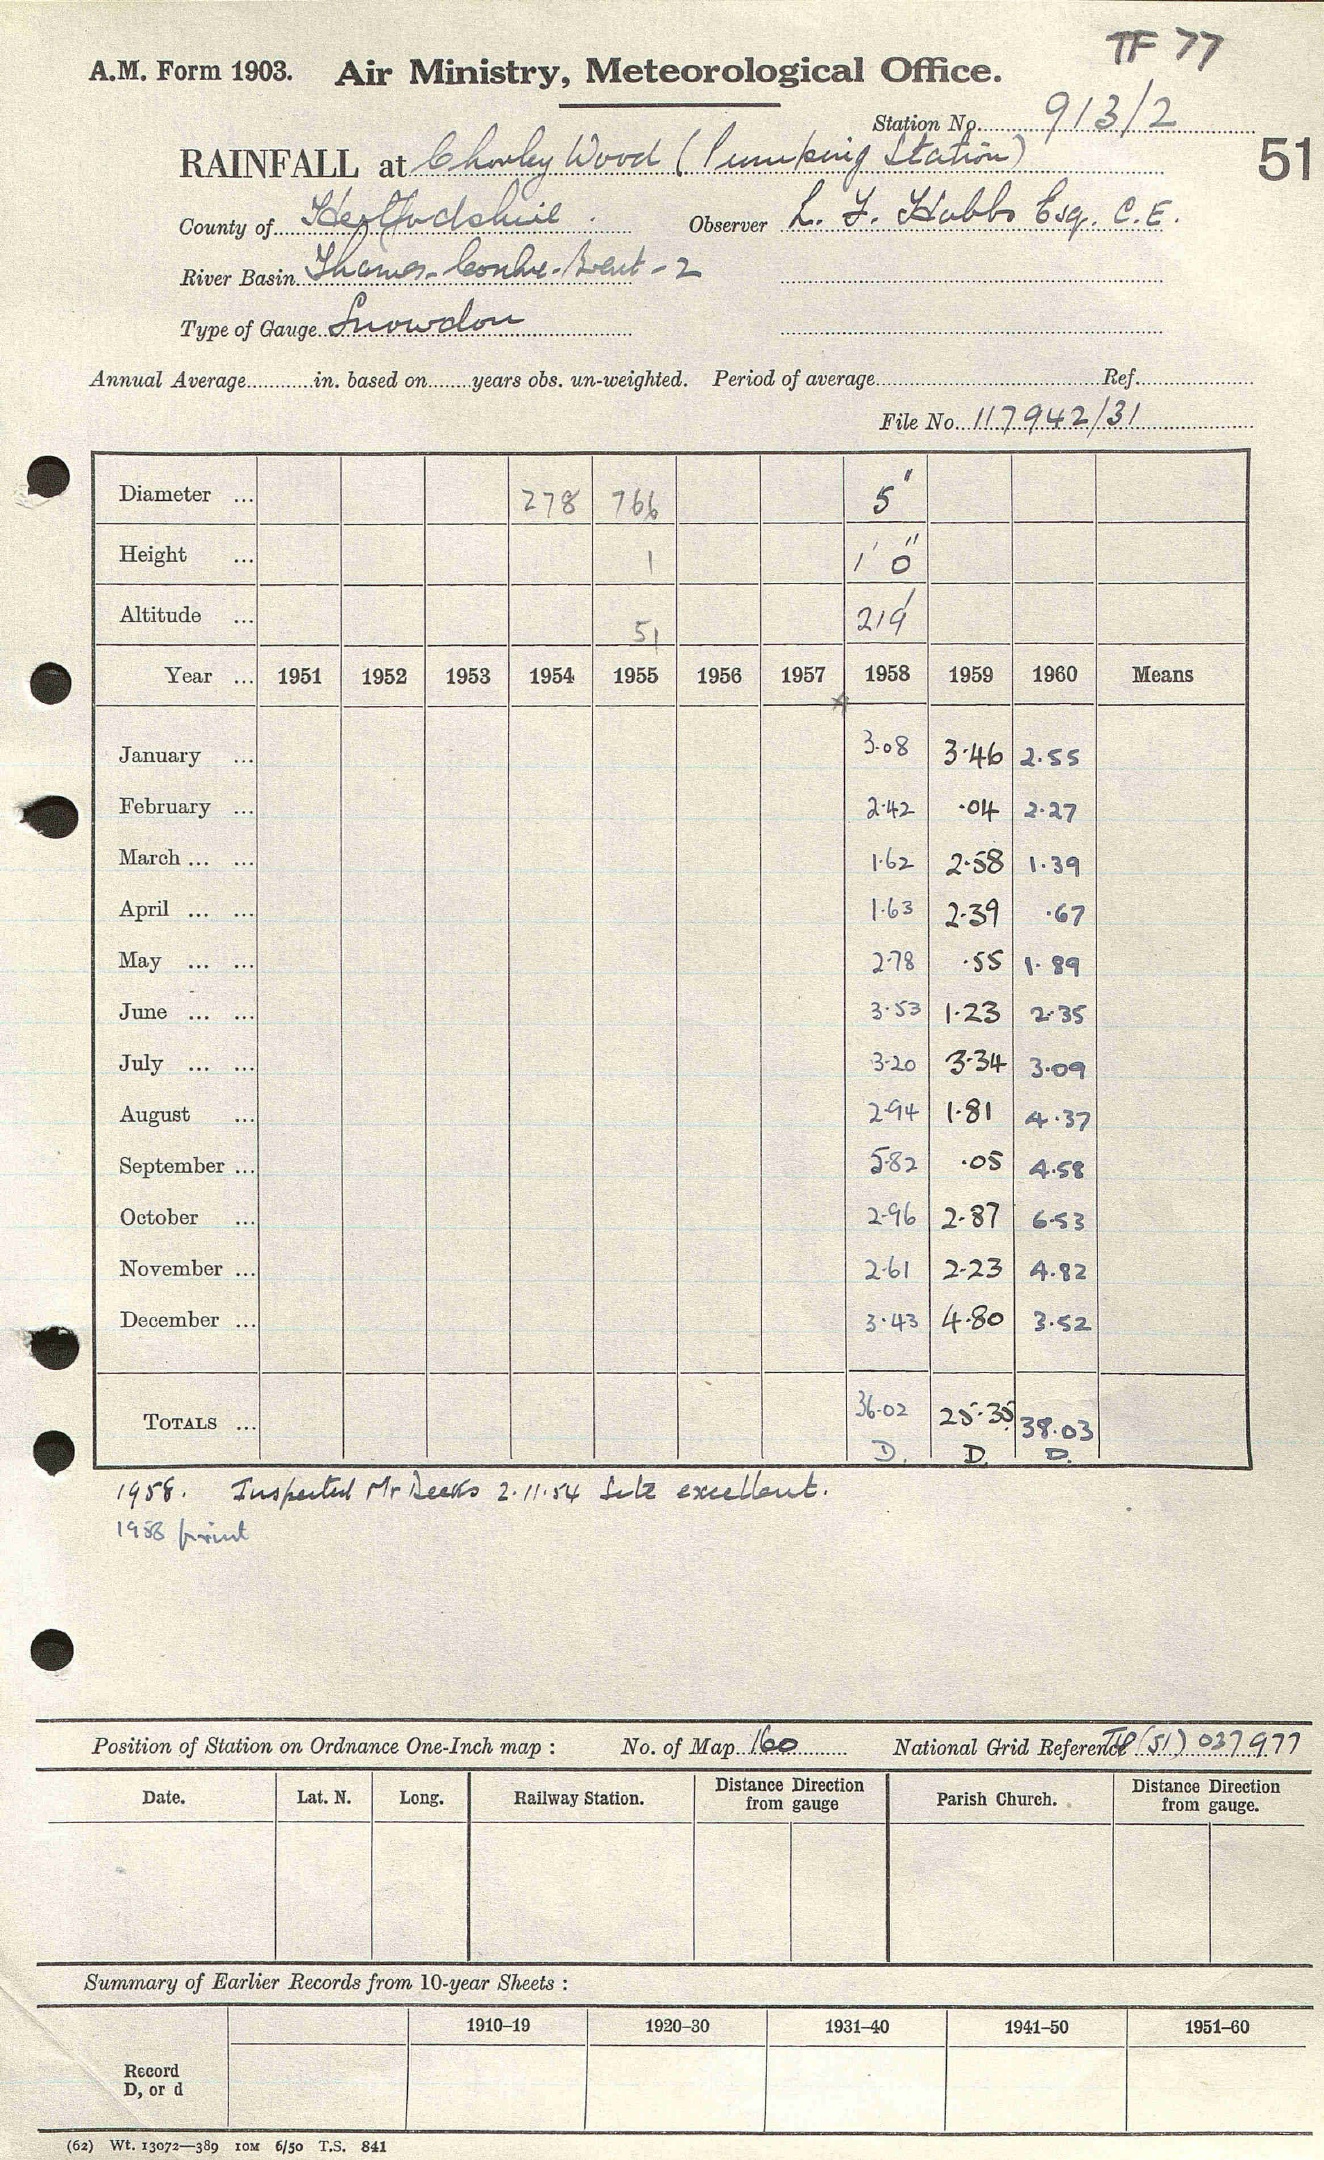 TF 77
A.M. Form 1903. Air Ministry, Meteorological Office.
Station No. 913/2
51
RAINFALL at Chorley Wood (Pumping Station)
County of Hertfordshire. Observer L. F. Hobbs Esq. C.E.
River Basin Thames - Colne - Brent - 2
Type of Gauge Snowdon
Annual Average in. based on years obs. un-weighted. Period of average Ref.
File No. 117942/31
Diameter ... 278 766 5"
Height ... 1 1' 0"
Altitude ... 51 219'
Year ... 1951 1952 1953 1954 1955 1956 1957 1958 1959 1960 Means
January ... 3.08 3.46 2.55
February ... 2.42 .04 2.27
March ... ... 1.62 2.58 1.39
April ... ... 1.63 2.39 .67
May ... ... 2.78 .55 1.89
June ... ... 3.53 1.23 2.35
July ... ... 3.20 3.34 3.09
August ... 2.94 1.81 4.37
September ... 5.82 .05 4.58
October ... 2.96 2.87 6.53
November ... 2.61 2.23 4.82
December ... 3.43 4.80 3.52
TOTALS ... 36.02 25.35 38.03
D. D. D.
1958. Inspected Mr Deeks 2.11.54 Site excellent.
1958 print
Position of Station on Ordnance One-Inch map : No. of Map 160 National Grid Reference (51) 037977
Date. Lat. N. Long. Railway Station. Distance Direction from gauge Parish Church. Distance Direction from gauge.
Summary of Earlier Records from 10-year Sheets :
1910-19 1920-30 1931-40 1941-50 1951-60
Record
D, or d
(62) Wt. 13072—389 10M 6/50 T.S. 841